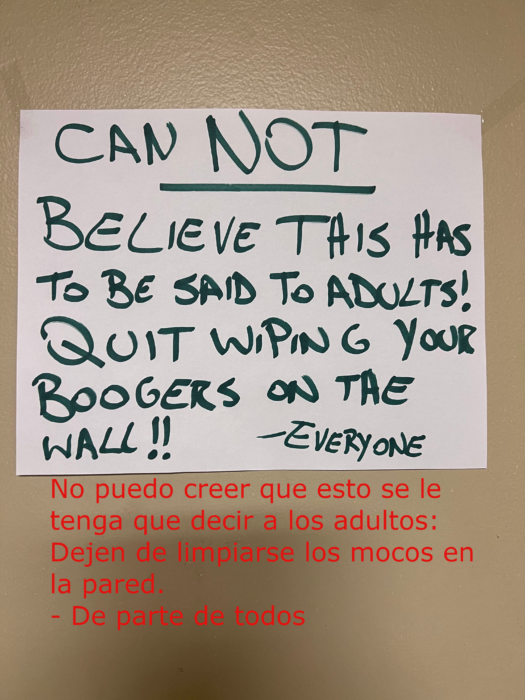 CAN NOT
BELIEVE THIS HAS
TO BE SAID TO ADULTS!
QUIT WIPING YOUR
BOOGERS ON THE
WALL!! -EVERYONE
No puedo creer que esto se le
tenga que decir a los adultos:
Dejen de limpiarse los mocos en
la pared.
- De parte de todos